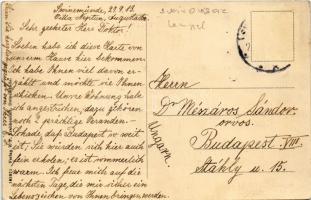 Swinemünde, 29.9.13.
Villa Neptun, Augustastr.
Sehr geehrter Herr Doktor!
Soeben habe ich diese Karte von
unserem Hause hier bekommen
ich habe Ihnen viel davon er-
zählt und möchte sie Ihnen
schicken. Unsere Wohnung habe
ich angestrichen, dazu gehören
noch 2 prächtige Veranden.
Schade daß Budapest so weit
ist; Sie würden sich hier auch
fein erholen; es ist sommerlich
warm. Ich freue mich auf die
nächsten Tage, die mir sicher ein
Lebenszeichen von Ihnen bringen werden.
Herrn
Dr Mészáros Sándor
orvos.
Budapest VIII.
Stáhly u. 15.
Ungarn